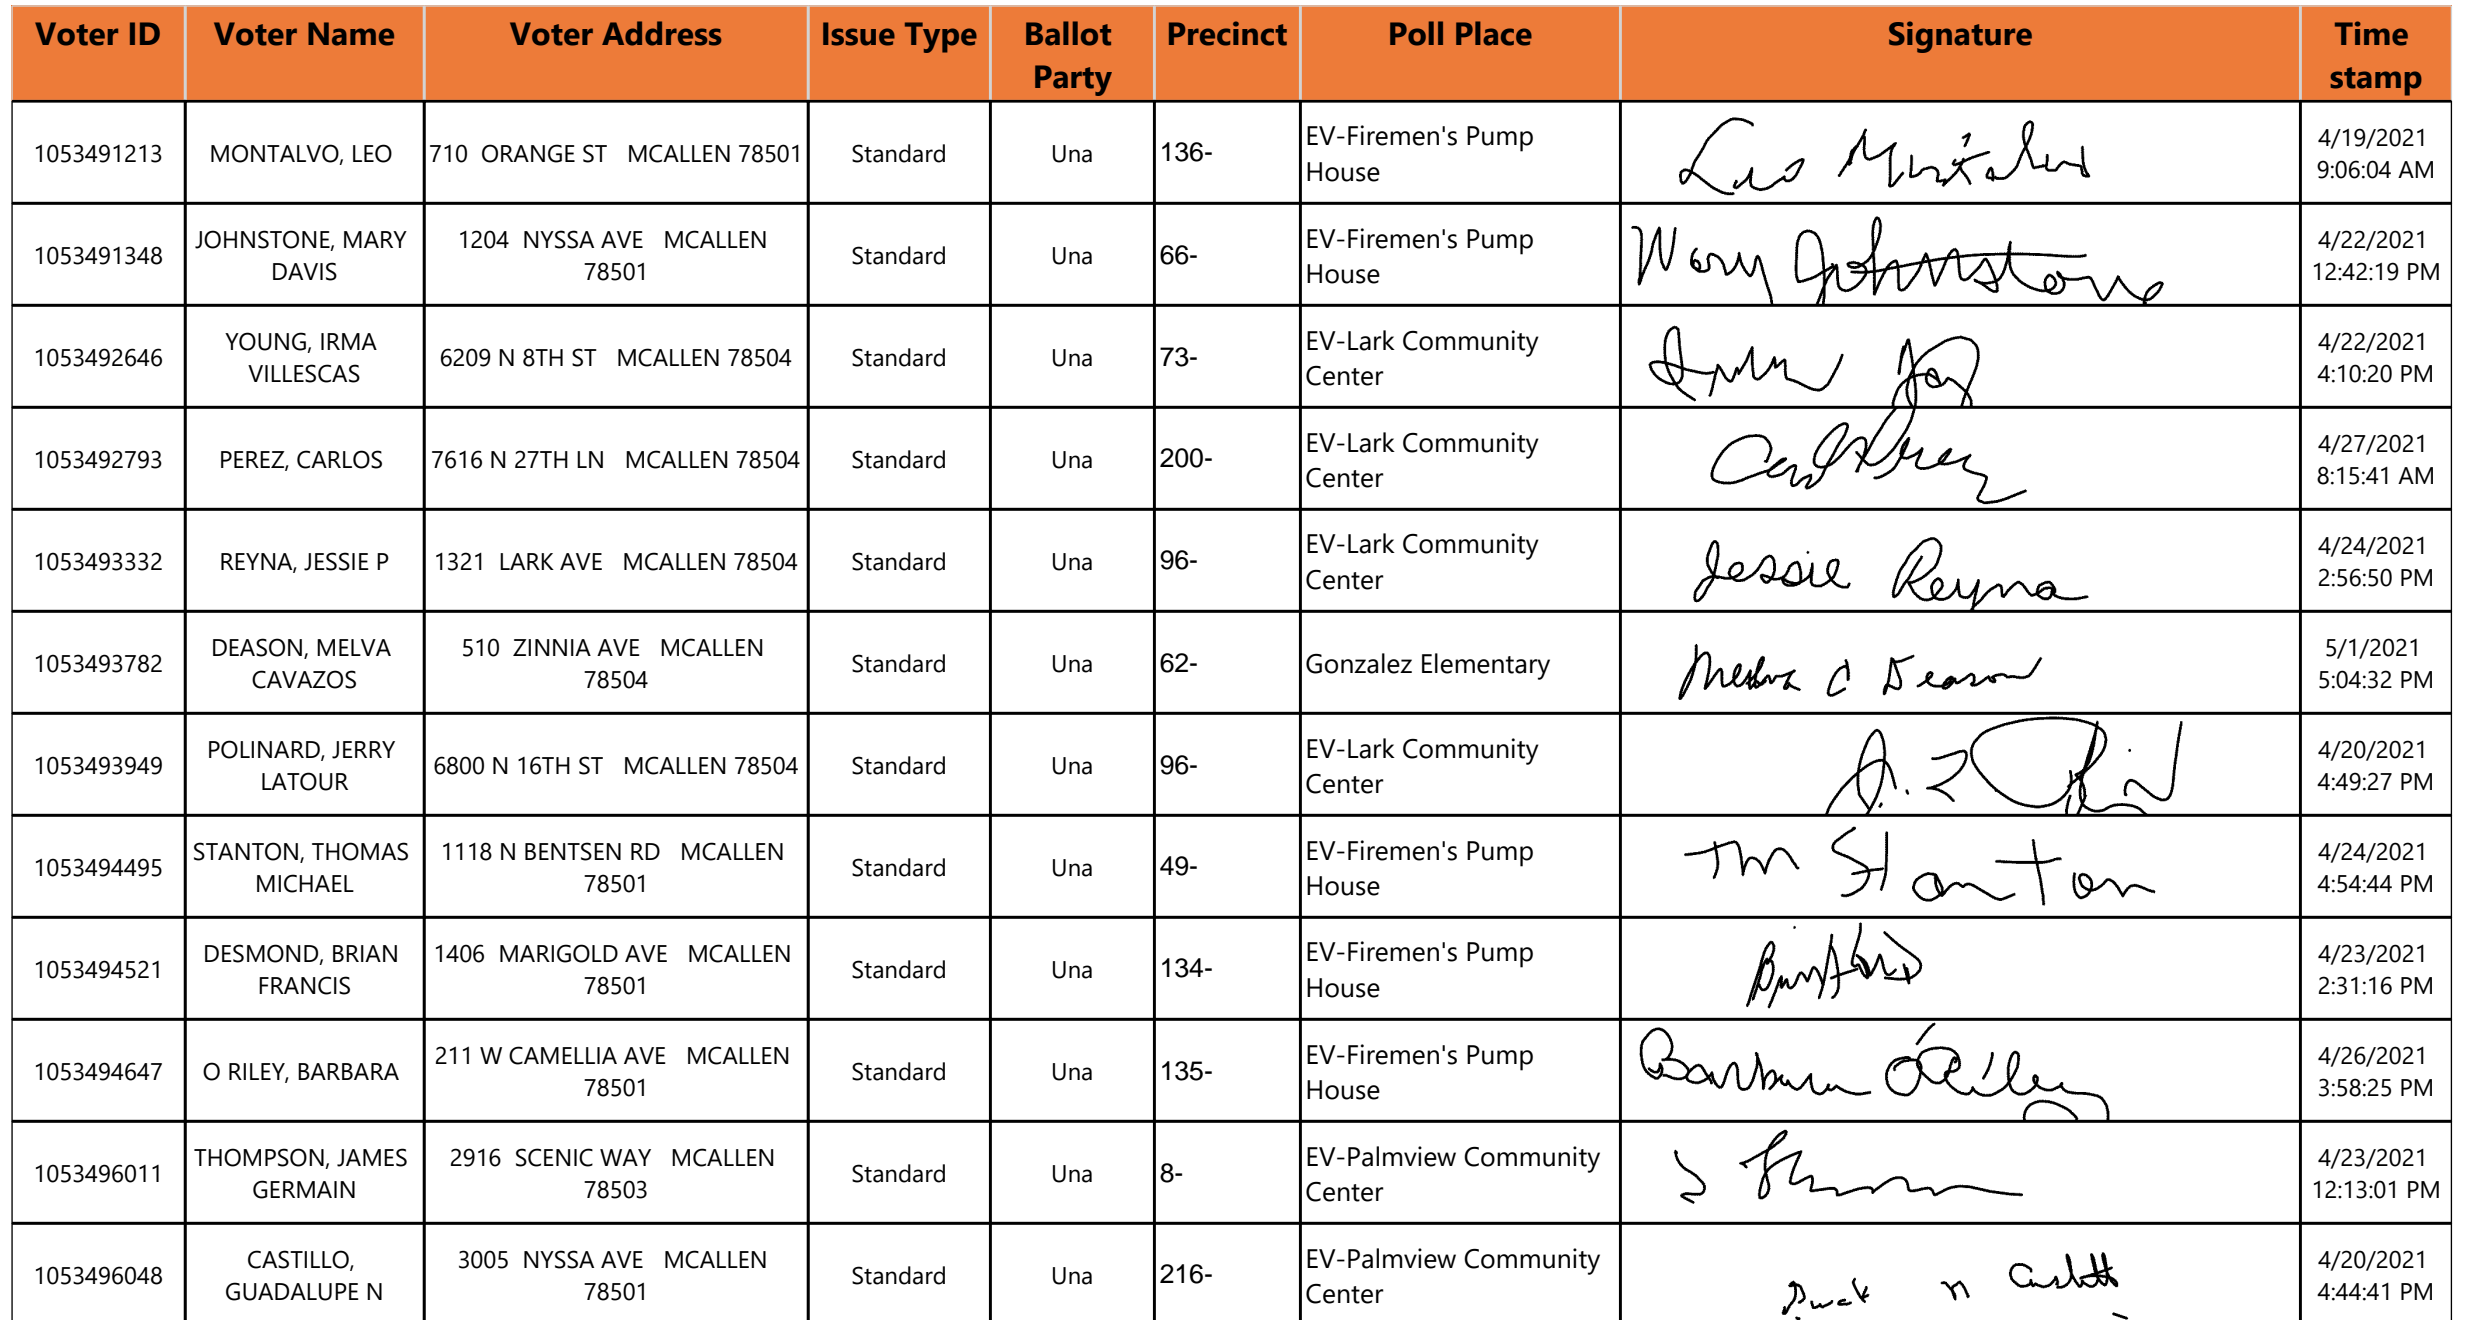 Voter ID Voter Name Voter Address Issue Type Ballot Party Precinct Poll Place Signature Time stamp
1053491213 MONTALVO, LEO 710 ORANGE ST MCALLEN 78501 Standard Una 136- EV-Firemen's Pump House Leo Montalvo 4/19/2021 9:06:04 AM
1053491348 JOHNSTONE, MARY DAVIS 1204 NYSSA AVE MCALLEN 78501 Standard Una 66- EV-Firemen's Pump House Mary Johnstone 4/22/2021 12:42:19 PM
1053492646 YOUNG, IRMA VILLESCAS 6209 N 8TH ST MCALLEN 78504 Standard Una 73- EV-Lark Community Center 4/22/2021 4:10:20 PM
1053492793 PEREZ, CARLOS 7616 N 27TH LN MCALLEN 78504 Standard Una 200- EV-Lark Community Center 4/27/2021 8:15:41 AM
1053493332 REYNA, JESSIE P 1321 LARK AVE MCALLEN 78504 Standard Una 96- EV-Lark Community Center Jessie Reyna 4/24/2021 2:56:50 PM
1053493782 DEASON, MELVA CAVAZOS 510 ZINNIA AVE MCALLEN 78504 Standard Una 62- Gonzalez Elementary Melva C Deason 5/1/2021 5:04:32 PM
1053493949 POLINARD, JERRY LATOUR 6800 N 16TH ST MCALLEN 78504 Standard Una 96- EV-Lark Community Center 4/20/2021 4:49:27 PM
1053494495 STANTON, THOMAS MICHAEL 1118 N BENTSEN RD MCALLEN 78501 Standard Una 49- EV-Firemen's Pump House TM Stanton 4/24/2021 4:54:44 PM
1053494521 DESMOND, BRIAN FRANCIS 1406 MARIGOLD AVE MCALLEN 78501 Standard Una 134- EV-Firemen's Pump House 4/23/2021 2:31:16 PM
1053494647 O RILEY, BARBARA 211 W CAMELLIA AVE MCALLEN 78501 Standard Una 135- EV-Firemen's Pump House Barbara O'Riley 4/26/2021 3:58:25 PM
1053496011 THOMPSON, JAMES GERMAIN 2916 SCENIC WAY MCALLEN 78503 Standard Una 8- EV-Palmview Community Center 4/23/2021 12:13:01 PM
1053496048 CASTILLO, GUADALUPE N 3005 NYSSA AVE MCALLEN 78501 Standard Una 216- EV-Palmview Community Center 4/20/2021 4:44:41 PM